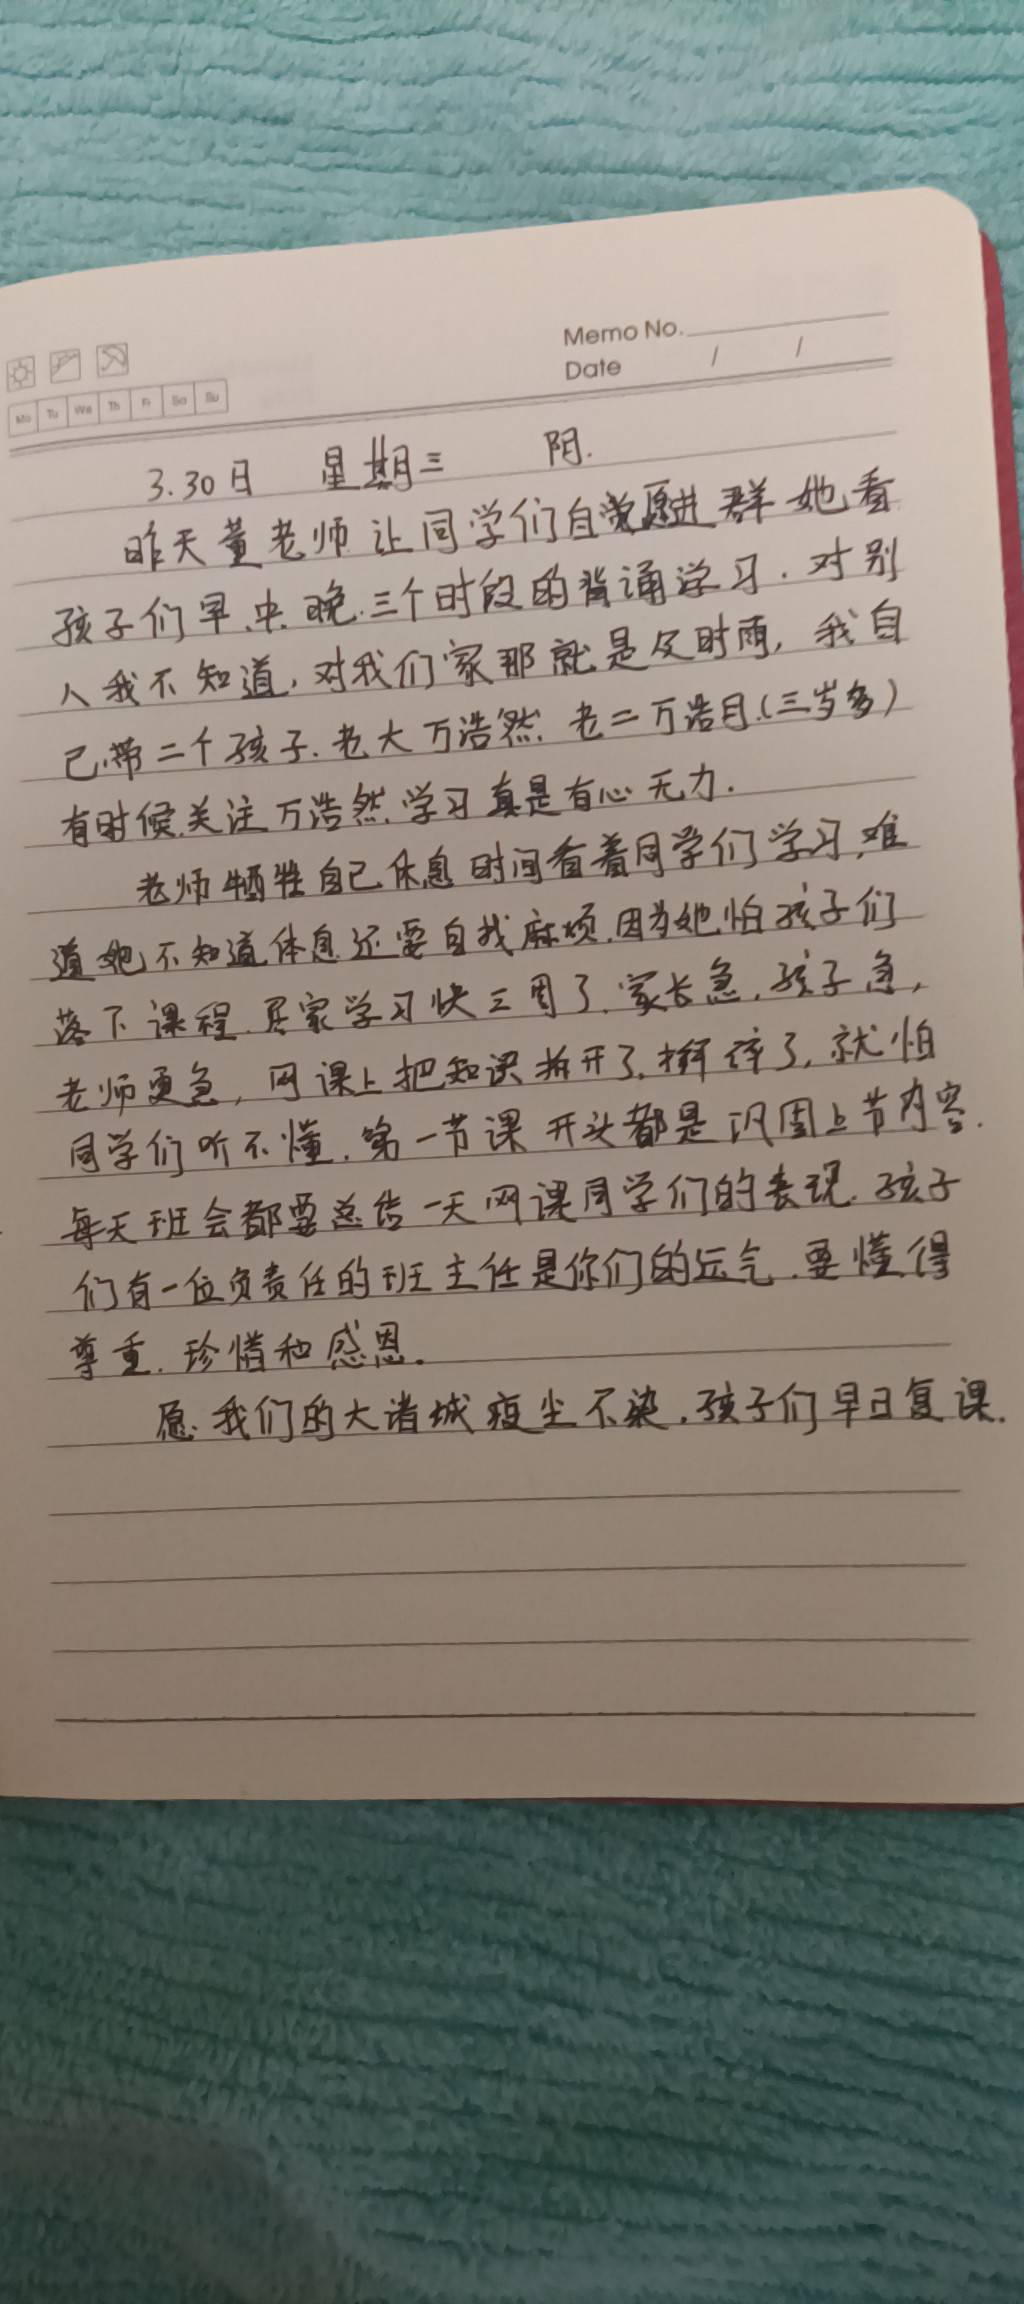 Memo No.
Date / /
Mo Tu We Th Fr Sa Su
3.30日 星期三 阴.
昨天董老师让同学们自愿进群她看
孩子们早.中.晚.三个时段的背诵学习.对别
人我不知道,对我们家那就是及时雨,我自
己带二个孩子.老大万浩然.老二万浩月.(三岁多)
有时候关注万浩然.学习真是有心无力.
老师牺牲自己休息时间看着同学们学习,难
道她不知道休息还要自找麻烦.因为她怕孩子们
落下课程.居家学习快三周了.家长急.孩子急,
老师更急,网课上把知识拆开了.掰碎了,就怕
同学们听不懂.第一节课开头都是巩固上节内容.
每天班会都要总结一天网课同学们的表现.孩子
们有一位负责任的班主任是你们的运气.要懂得
尊重.珍惜和感恩。
愿.我们的大诸城疫尘不染.孩子们早日复课.